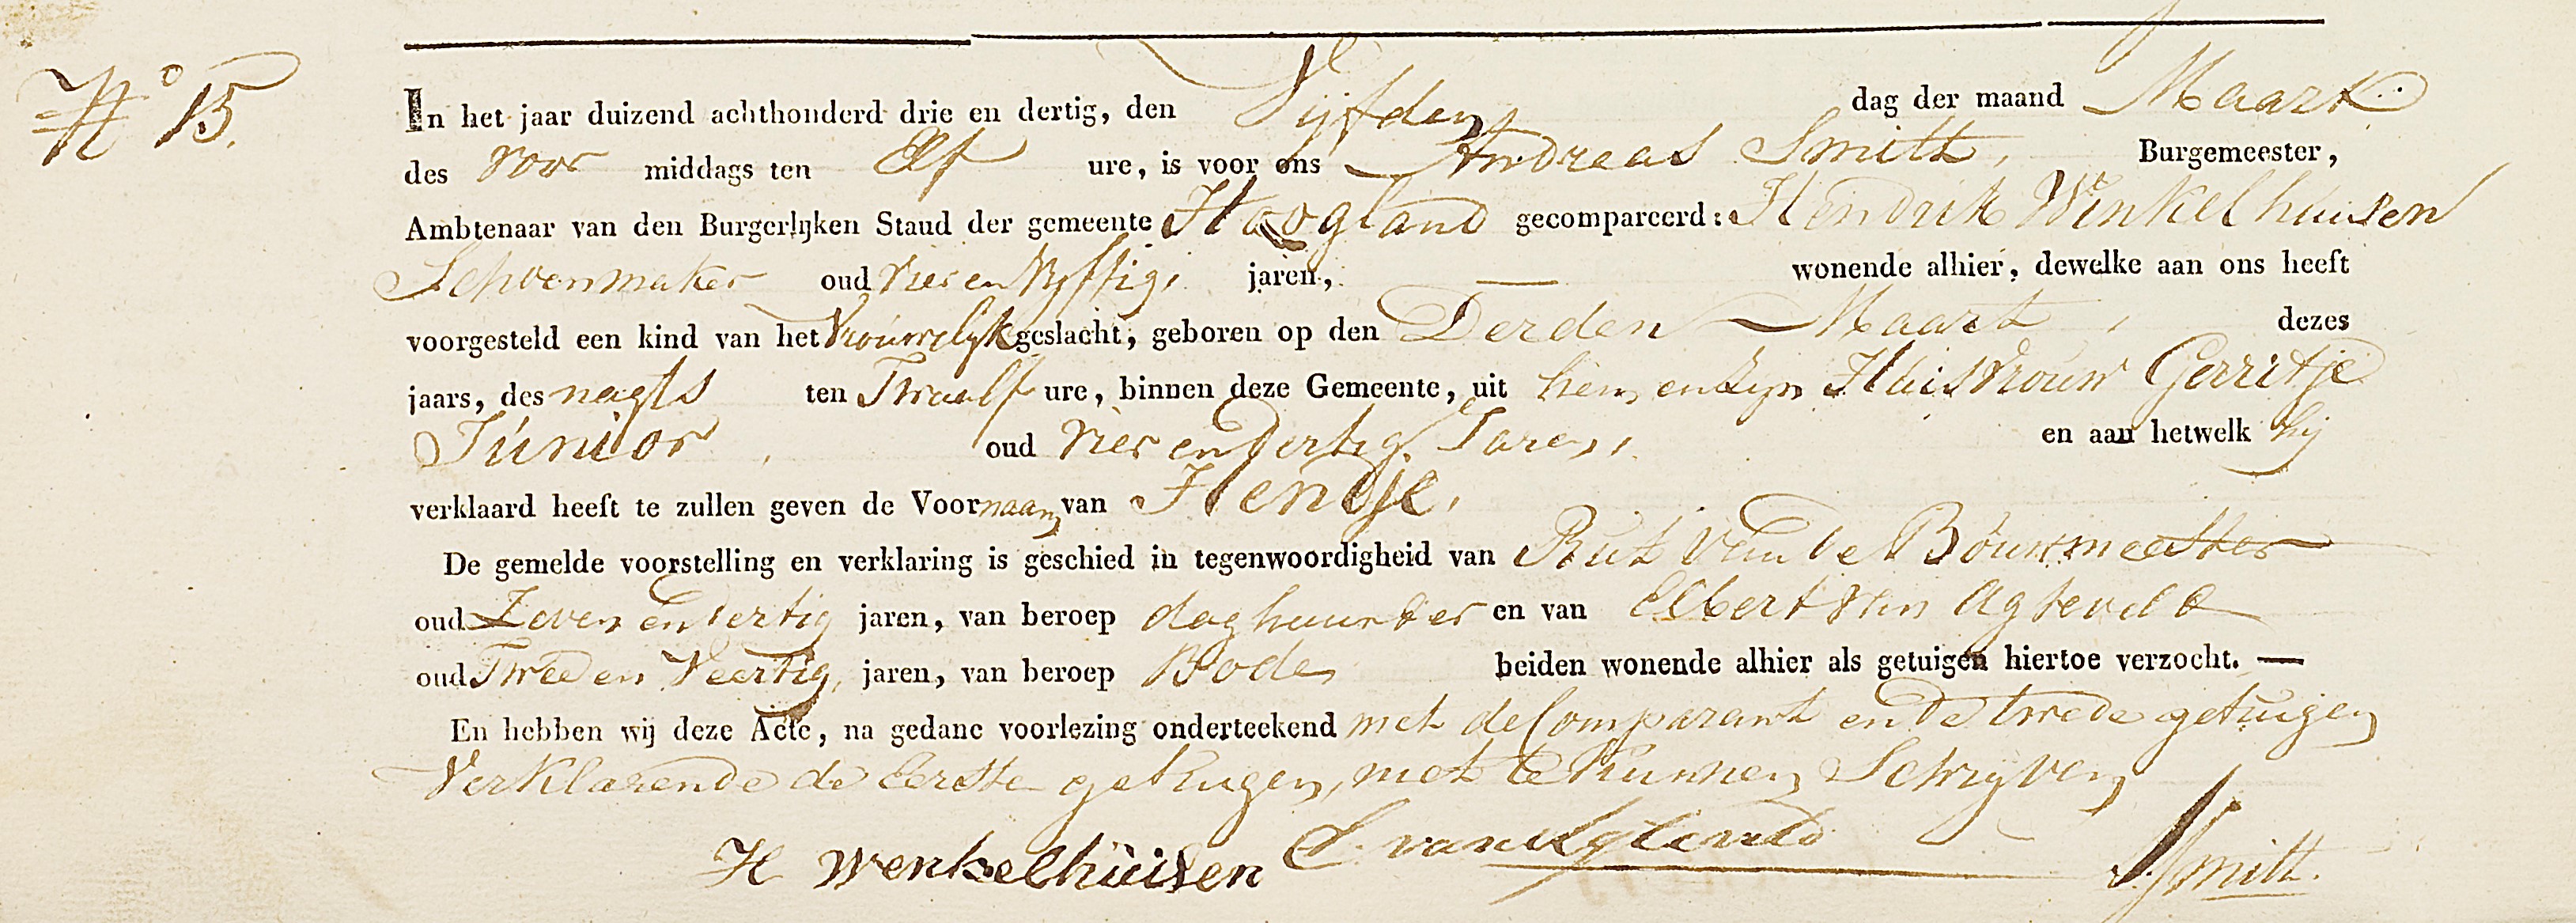 N.o 15.
In het jaar duizend achthonderd drie en dertig, den Vijfden dag der maand Maart
des voor middags ten Elf ure, is voor ons Andreas Smitt, Burgemeester,
Ambtenaar van den Burgerlijken Staud der gemeente Hoogland gecompareerd: Hendrik Winkelhuisen
Schoenmaker oud Vier en Vyftig, jaren, — wonende alhier, dewelke aan ons heeft
voorgesteld een kind van het Vrouwelyk geslacht, geboren op den Derden Maart, dezes
jaars, des nagts ten Twaalf ure, binnen deze Gemeente, uit hem en zyn Huisvrouw Gerritje
Junior, oud Vier en Dertig Jaren, en aan hetwelk hij
verklaard heeft te zullen geven de Voornaam van Hendje.
De gemelde voorstelling en verklaring is geschied in tegenwoordigheid van Rut van de Bouwmeester
oud Zeven en Dertig jaren, van beroep daghuurder en van Elbert van Agteveld
oud Twee en Veertig, jaren, van beroep Bode beiden wonende alhier als getuigen hiertoe verzocht. —
En hebben wij deze Acte, na gedane voorlezing onderteekend met de Comparant en de twede getuigen
Verklarende de Eerste getuigen, niet te Kunnen Schryven
H Wenkelhuisen E. van Agteveld ASmitt.